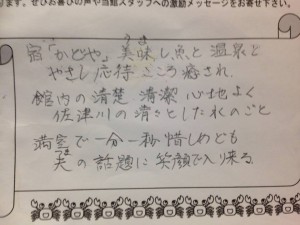 ります。ぜひお喜びの声や当館スタッフへの激励メッセージをお寄せ下さい。
宿「かどや」美味し魚と温泉と
やさし応待こころ癒され
館内の清楚 清潔 心地よく
佐津川の清さとした水のごと
満室で一分一秒惜しめども
夫の話題に笑顔で入り来る